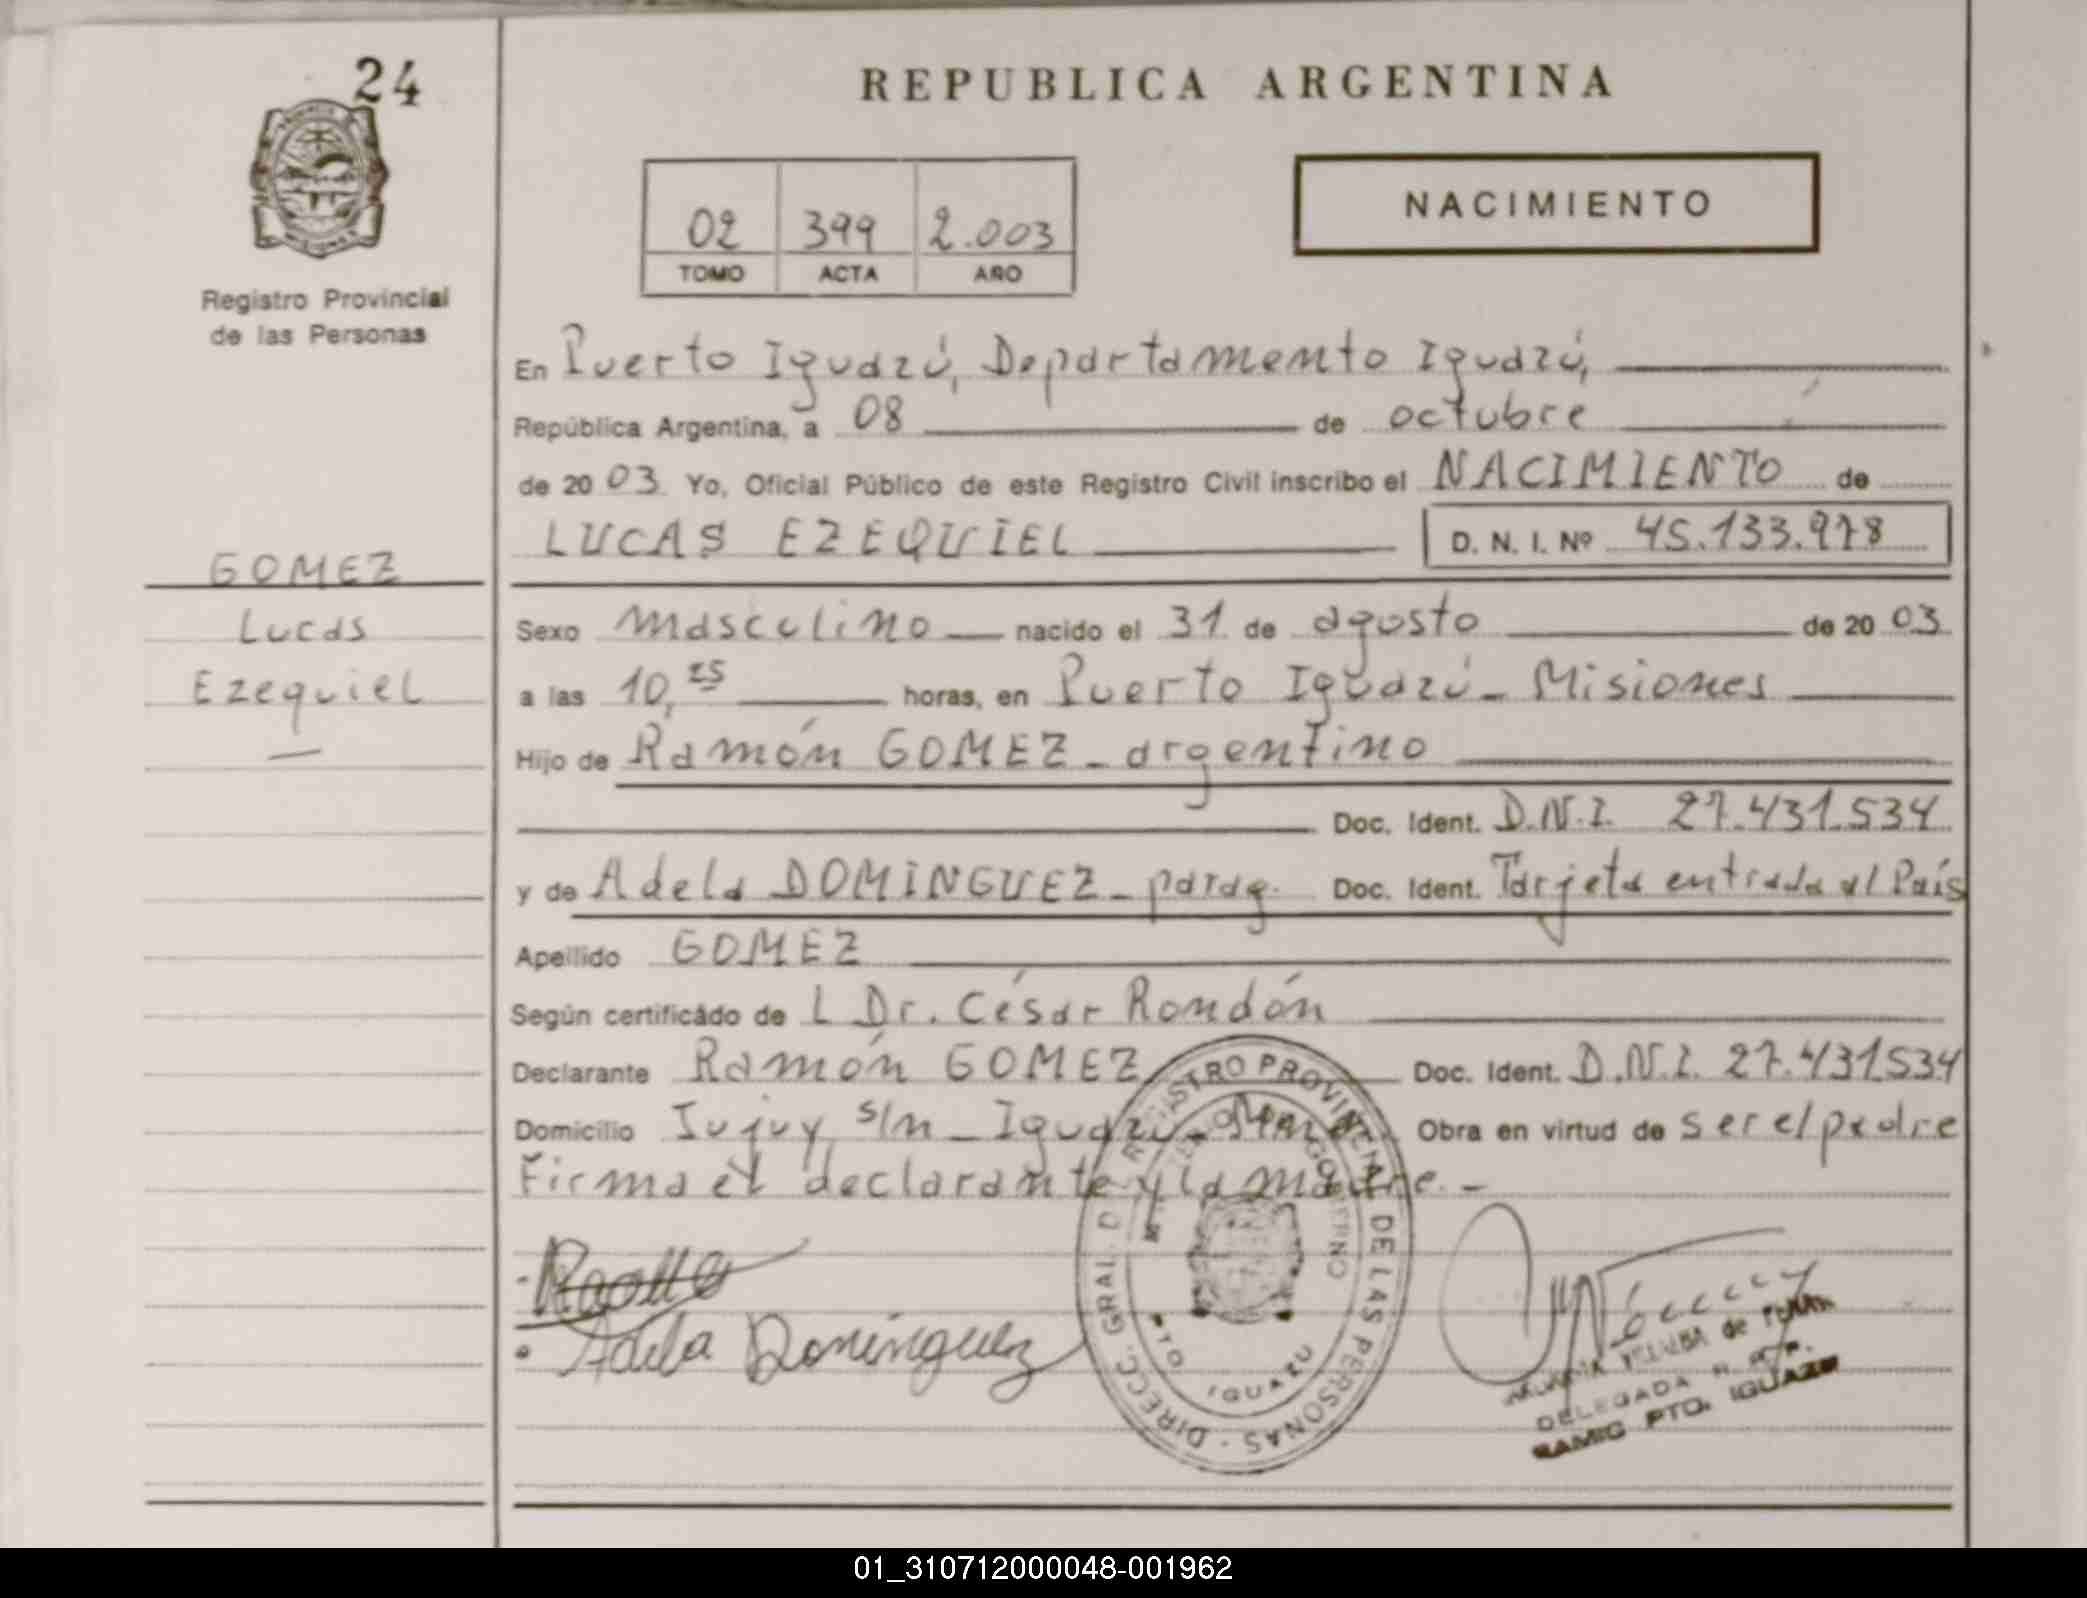 24
REPUBLICA ARGENTINA
NACIMIENTO
02 399 2.003
TOMO ACTA AÑO
Registro Provincial
de las Personas
En Puerto Iguazú, Departamento Iguazú,
República Argentina, a 08 de octubre
de 2003 Yo, Oficial Público de este Registro Civil inscribo el NACIMIENTO de
LUCAS EZEQUIEL D. N. I. Nº 45.133.978
GOMEZ
Lucas
Ezequiel
Sexo masculino nacido el 31 de agosto de 2003
a las 10,25 horas, en Puerto Iguazú - Misiones
Hijo de Ramón GOMEZ - argentino
Doc. Ident. D.N.I. 27.431.534
y de Adela DOMINGUEZ - parag. Doc. Ident. Tarjeta entrada al País
Apellido GOMEZ
Según certificádo de L Dr. César Rondón
Declarante Ramón GOMEZ Doc. Ident. D.N.I. 27.431.534
Domicilio Jujuy s/n - Iguazú Obra en virtud de ser el padre
Firma el declarante y la madre. -
Adela Dominguez
DIRECC. GRAL. DE REGISTRO PROVINCIAL DE LAS PERSONAS
PTO IGUAZU
de
DELEGADA
PTO. IGUAZU
01_310712000048-001962